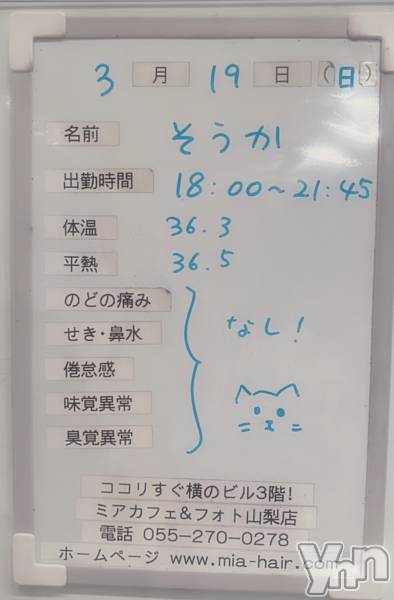 3月19日(日)
名前 そうか
出勤時間 18:00~21:45
体温 36.3
平熱 36.5
のどの痛み
せき・鼻水
倦怠感
味覚異常
臭覚異常
なし!
ココリすぐ横のビル3階!
ミアカフェ&フォト山梨店
電話 055-270-0278
ホームページ www.mia-hair.com
Ynn